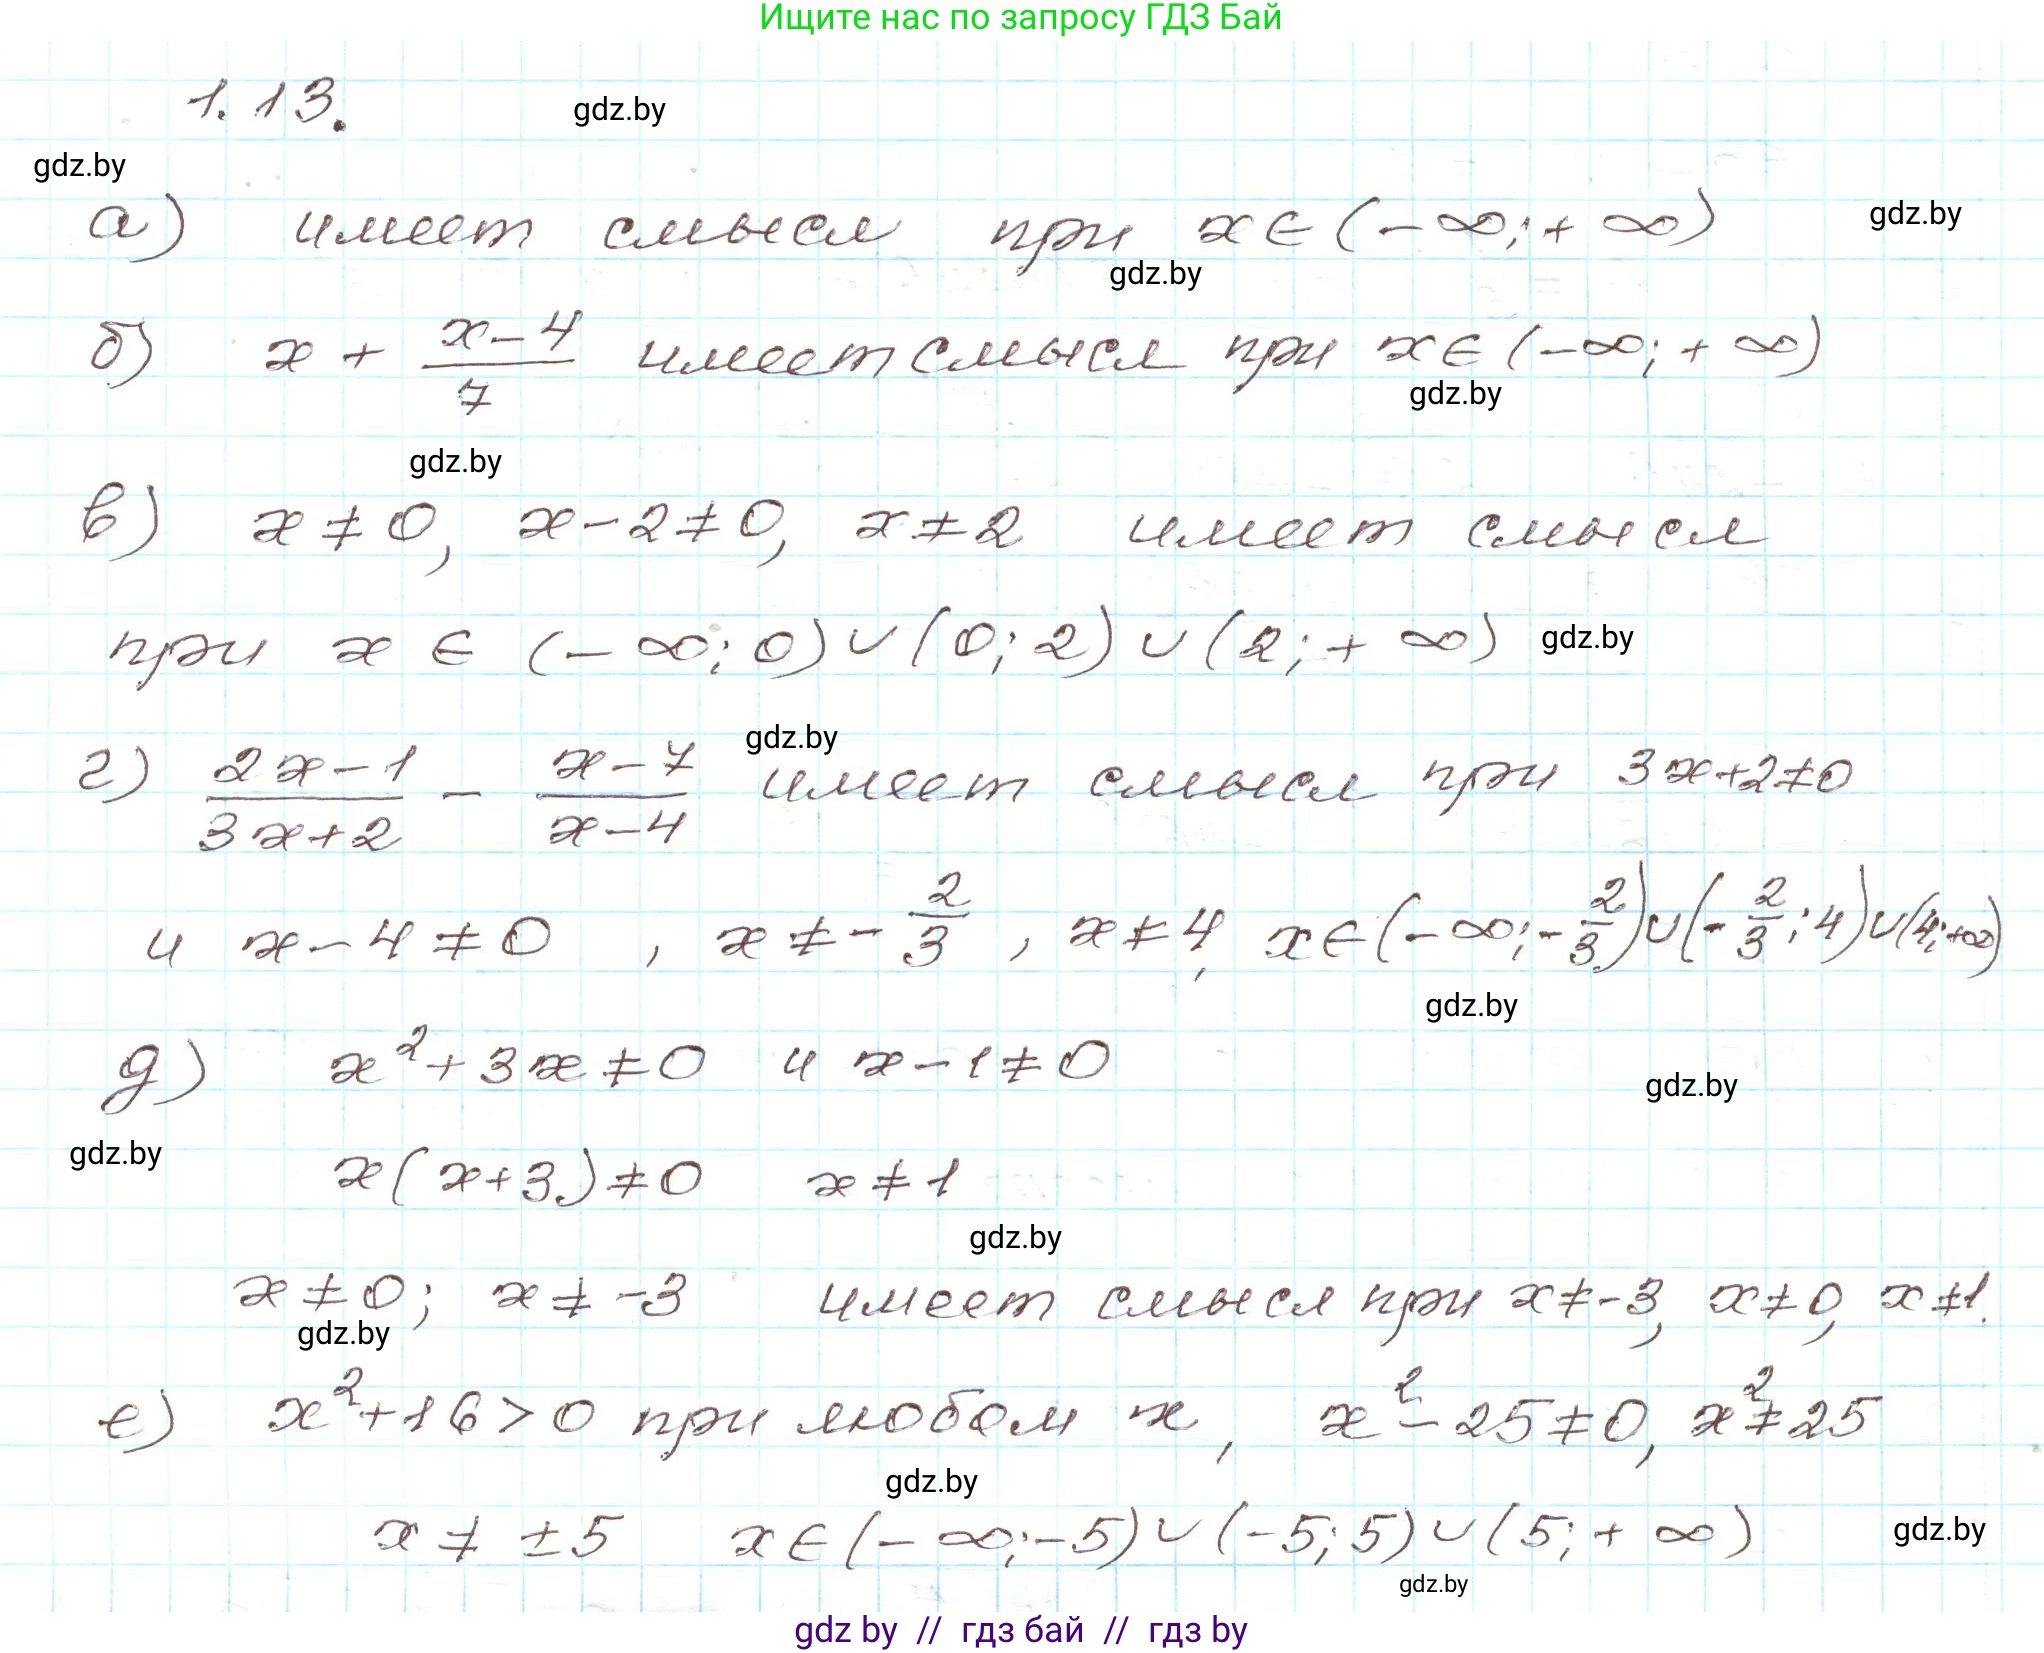 Ищите нас по запросу ГДЗ Бай
1.13.
gdz.by
gdz.by
а) имеет смысл при x∈(-∞;+∞)
gdz.by
gdz.by
б) x + (x-4)/7 имеет смысл при x∈(-∞;+∞)
gdz.by
gdz.by
в) x≠0, x-2≠0, x≠2 имеет смысл
при x ∈ (-∞;0)∪(0;2)∪(2;+∞)
gdz.by
gdz.by
г) (2x-1)/(3x+2) - (x-7)/(x-4) имеет смысл при 3x+2≠0
и x-4≠0, x≠-2/3, x≠4, x∈(-∞;-2/3)∪(-2/3;4)∪(4;+∞)
gdz.by
д) x²+3x≠0 и x-1≠0
gdz.by
gdz.by
x(x+3)≠0 x≠1
gdz.by
x≠0; x≠-3 имеет смысл при x≠-3, x≠0, x≠1.
gdz.by
е) x²+16>0 при любом x, x²-25≠0, x²≠25
gdz.by
x≠±5 x∈(-∞;-5)∪(-5;5)∪(5;+∞)
gdz.by
gdz.by
gdz by // гдз бай // гдз by